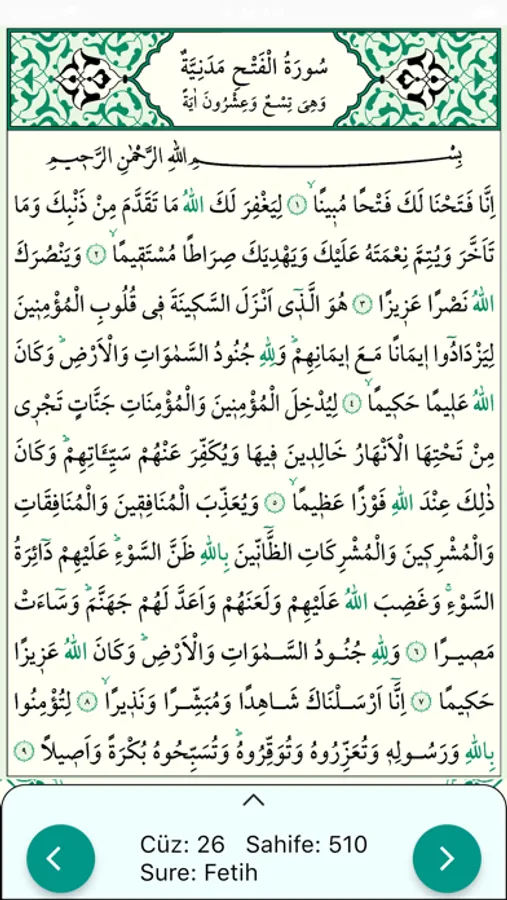 سُورَةُ الْفَتْحِ مَدَنِيَّةٌ
وَهِىَ تِسْعٌ وَعِشْرُونَ اٰيَةً
بِسْمِ اللهِ الرَّحْمٰنِ الرَّحٖيمِ
اِنَّا فَتَحْنَا لَكَ فَتْحًا مُبٖينًاۙ ﴿١﴾ لِيَغْفِرَ لَكَ اللهُ مَا تَقَدَّمَ مِنْ ذَنْبِكَ وَمَا
تَاَخَّرَ وَيُتِمَّ نِعْمَتَهُ عَلَيْكَ وَيَهْدِيَكَ صِرَاطًا مُسْتَقٖيمًاۙ ﴿٢﴾ وَيَنْصُرَكَ
اللهُ نَصْرًا عَزٖيزًا ﴿٣﴾ هُوَ الَّذٖى اَنْزَلَ السَّكٖينَةَ فٖى قُلُوبِ الْمُؤْمِنٖينَ
لِيَزْدَادُٓوا اٖيمَانًا مَعَ اٖيمَانِهِمْؕ وَلِلّٰهِ جُنُودُ السَّمٰوَاتِ وَالْاَرْضِؕ وَكَانَ
اللهُ عَلٖيمًا حَكٖيمًاۙ ﴿٤﴾ لِيُدْخِلَ الْمُؤْمِنٖينَ وَالْمُؤْمِنَاتِ جَنَّاتٍ تَجْرٖى
مِنْ تَحْتِهَا الْاَنْهَارُ خَالِدٖينَ فٖيهَا وَيُكَفِّرَ عَنْهُمْ سَيِّـَٔاتِهِمْؕ وَكَانَ
ذٰلِكَ عِنْدَ اللهِ فَوْزًا عَظٖيمًاۙ ﴿٥﴾ وَيُعَذِّبَ الْمُنَافِقٖينَ وَالْمُنَافِقَاتِ
وَالْمُشْرِكٖينَ وَالْمُشْرِكَاتِ الظَّٓانّٖينَ بِاللهِ ظَنَّ السَّوْءِؕ عَلَيْهِمْ دَٓائِرَةُ
السَّوْءِۚ وَغَضِبَ اللهُ عَلَيْهِمْ وَلَعَنَهُمْ وَاَعَدَّ لَهُمْ جَهَنَّمَؕ وَسَٓاءَتْ
مَصٖيرًا ﴿٦﴾ وَلِلّٰهِ جُنُودُ السَّمٰوَاتِ وَالْاَرْضِؕ وَكَانَ اللهُ عَزٖيزًا
حَكٖيمًا ﴿٧﴾ اِنَّٓا اَرْسَلْنَاكَ شَاهِدًا وَمُبَشِّرًا وَنَذٖيرًاۙ ﴿٨﴾ لِتُؤْمِنُوا
بِاللهِ وَرَسُولِهٖ وَتُعَزِّرُوهُ وَتُوَقِّرُوهُؕ وَتُسَبِّحُوهُ بُكْرَةً وَاَصٖيلًا ﴿٩﴾
Cüz: 26 Sahife: 510
Sure: Fetih